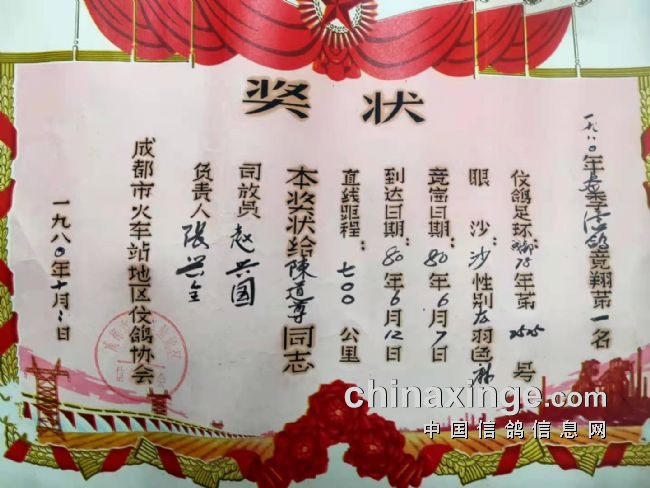 奖状
一九八〇年春季信鸽竞翔第一名
伩鸽足环 78年第 2525 号
眼 沙:沙 性别 羽色
竞窩日期:80年6月7日
到达日期:80年6月12日
直线距程:七00 公里
本奖状给陳道尊同志
司放员 赵兴国
负责人 張兴全
成都市火车站地区伩鸽协会
一九八〇年十月 日
chinaxinge.com
中国信鸽信息网